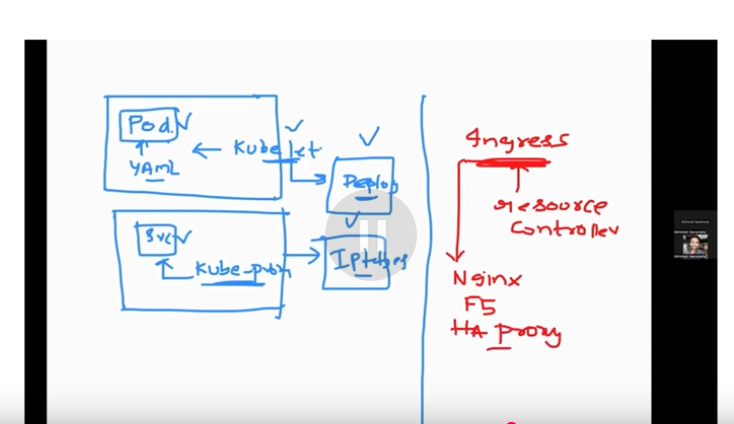 Pod.
YAML
Kubelet
Deploy
Svc
Kube-proxy
Iptables
Ingress
resource
Controller
Nginx
F5
HA proxy